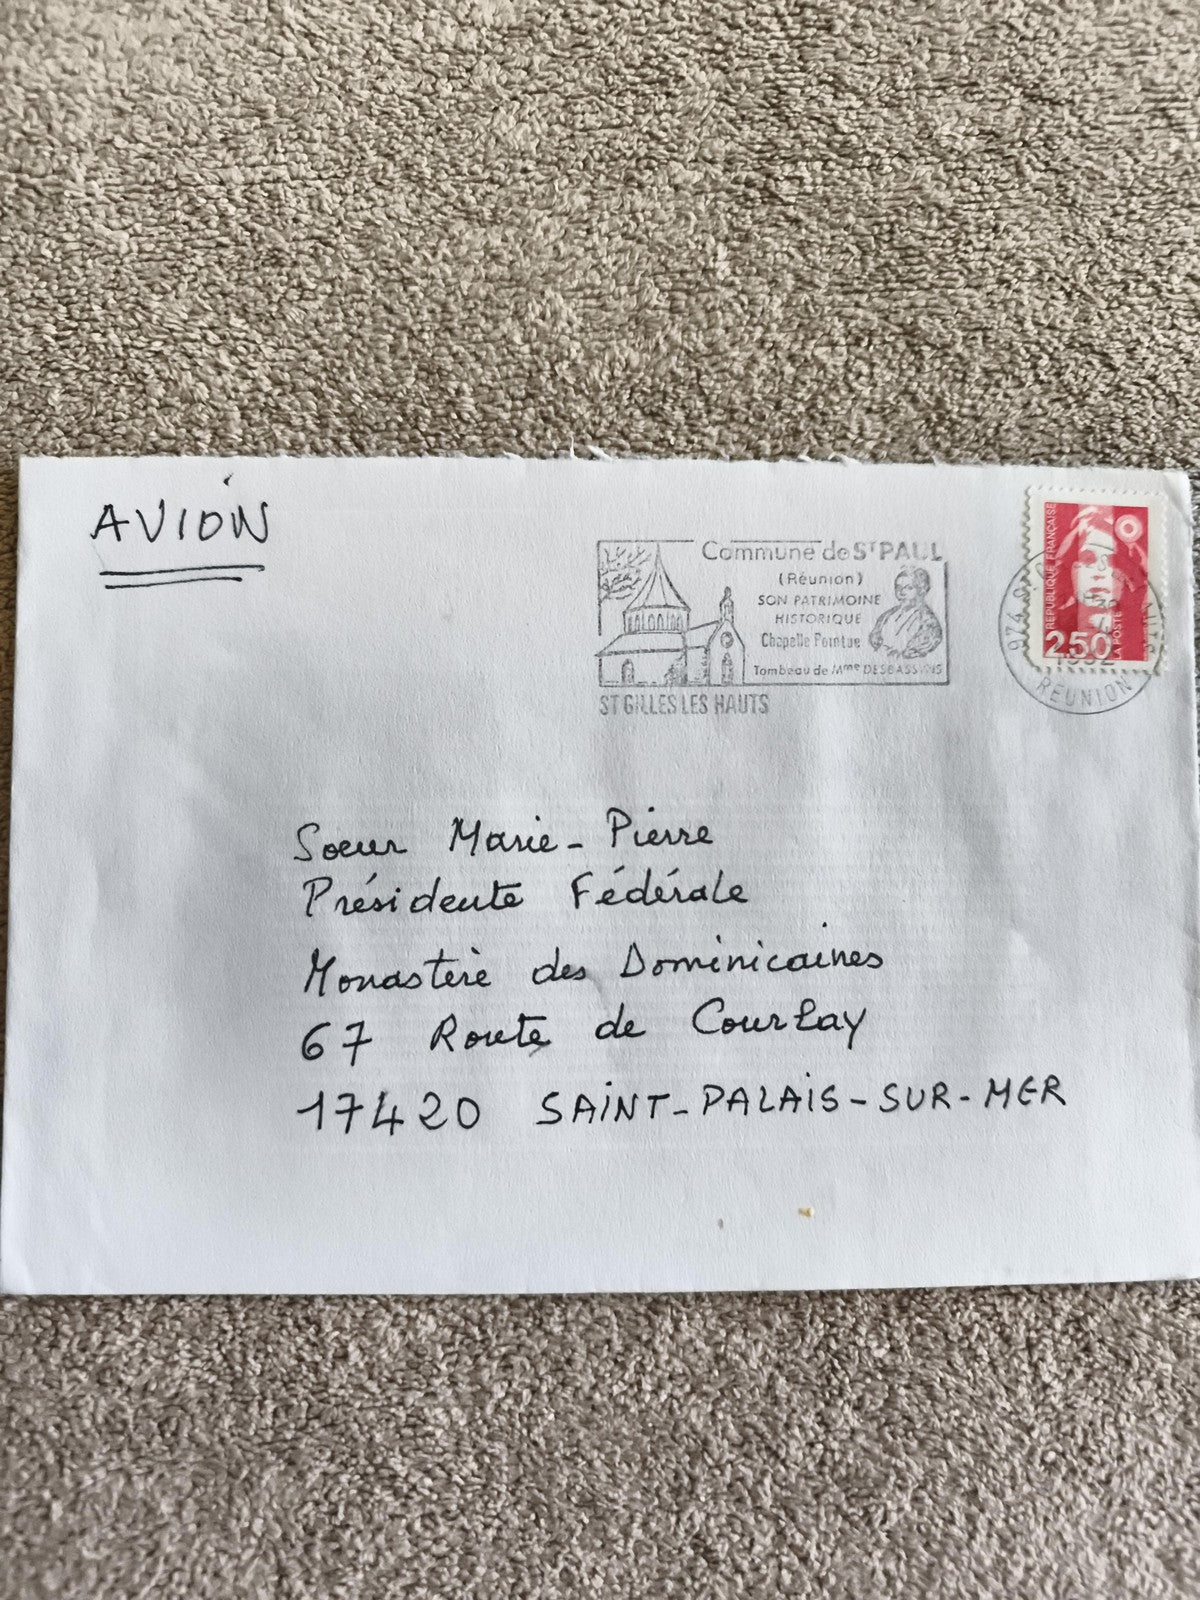 AVION
Commune de ST PAUL
(Réunion)
SON PATRIMOINE
HISTORIQUE
Chapelle Pointue
Tombeau de Mme DESBASSYNS
ST GILLES LES HAUTS
REPUBLIQUE FRANÇAISE
2,50
LA POSTE
974
1992
REUNION
Soeur Marie-Pierre
Présidente Fédérale
Monastère des Dominicaines
67 Route de Courlay
17420 SAINT-PALAIS-SUR-MER